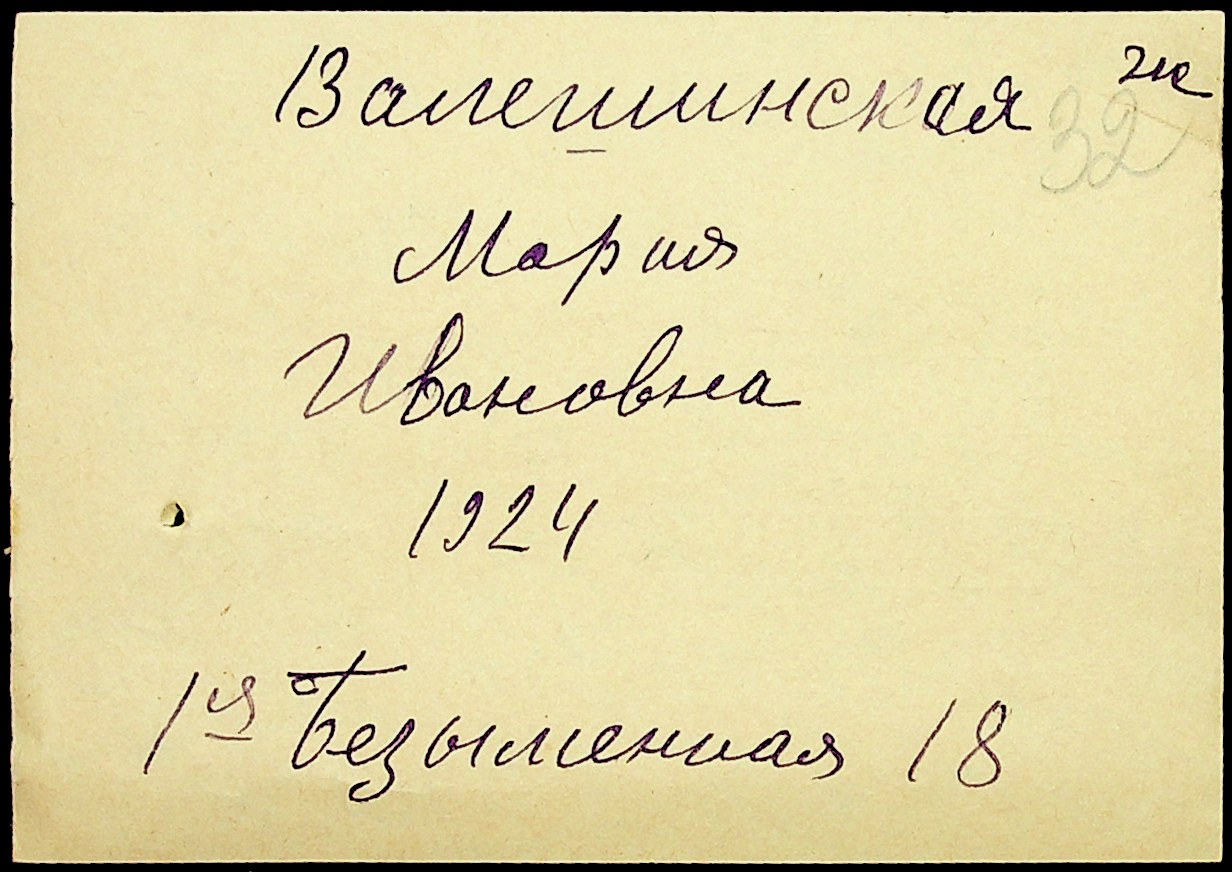 Валешинская ж
32
Мария
Ивановна
1924
1я Безыменная 18